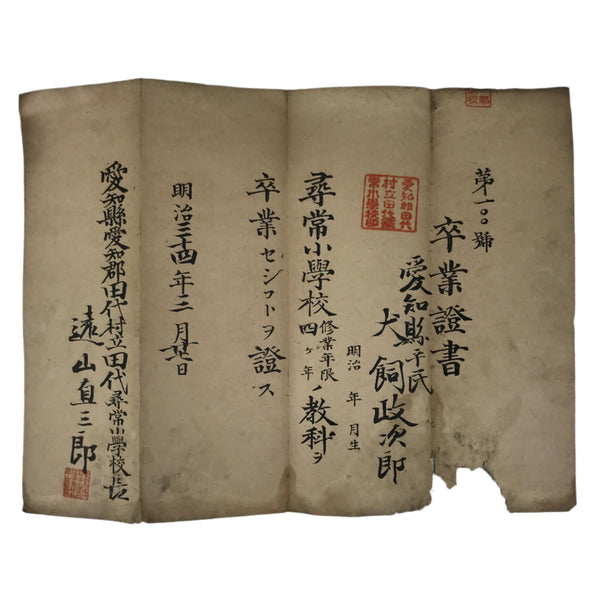 第一〇〇號
卒業證書
愛知縣平民
犬飼政次郎
明治 年 月生
愛知郡田代
村立田代尋
常小學校印
尋常小學校修業年限四ヶ年ノ教科ヲ
卒業セシコトヲ證ス
明治三十四年三月 日
愛知縣愛知郡田代村立田代尋常小學校長
遠山直三郎